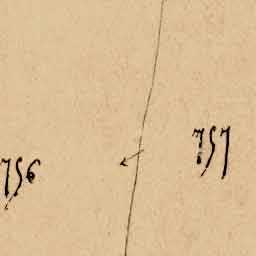 757
756